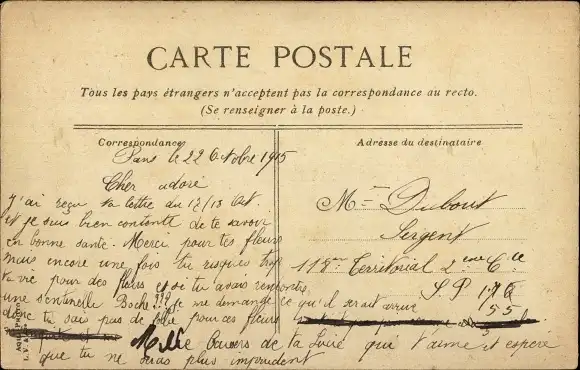 CARTE POSTALE
Tous les pays étrangers n'acceptent pas la correspondance au recto.
(Se renseigner à la poste.)
Correspondance
Paris le 22 Octobre 1915
Cher adoré
J'ai reçu ta lettre du 12/13 Oct.
et je suis bien contente de te savoir
en bonne santé. Merci pour tes fleurs
mais encore une fois tu risques trop
ta vie pour des fleurs et si tu avais rencontré
une sentinelle Boche??? je me demande ce qu'il serait arrivé
donc tu sais pas de pour ces fleurs
Mille baisers de ta qui t'aime et espère
que tu ne seras plus imprudent
Adresse du destinataire
Mr Dubout
Sergent
118me Territorial 2eme Cie
S P
155